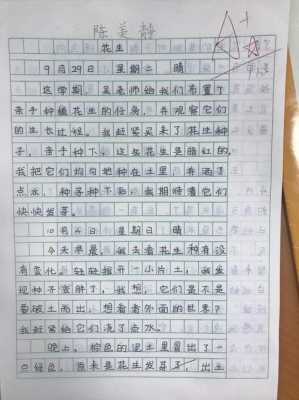 陈美静
花生
9月29日 星期二 晴
这学期，吴老师给我们布置了
亲手种植花生的任务，并观察它们
的生长过程。我赶紧买来了花生种
子，亲手种下，这些花生是暗红的，
我把它们均匀地种在土里，并洒了
点水。种子种下后，我期待着它们
快快发芽。
10月4日 星期日 晴
今天早晨，我去看花生种有没
有变化，轻轻拍开一小片土，我发
现种子变胖了，我想，它们是不是
要破土而出，想看看外面的世界？
我赶紧给它们浇了点水。
晚上，棕色的泥土里冒出了一
点绿色，原来是花生发芽了，出土